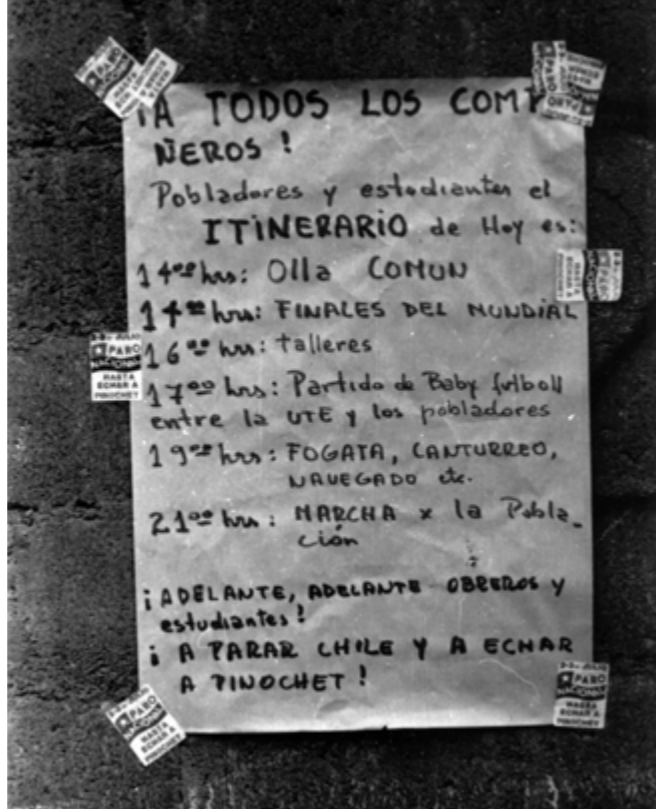 ¡A TODOS LOS COMPA
ÑEROS!
Pobladores y estudiantes el
ITINERARIO de Hoy es:
14ºº hrs: Olla COMUN
14ºº hrs: FINALES DEL MUNDIAL
16ºº hrs: talleres
17ºº hrs: Partido de Baby futboll
entre la UTE y los pobladores
19ºº hrs: FOGATA, CANTURREO,
NAVEGADO etc.
21ºº hrs: MARCHA x la Pobla_
ción
¡ADELANTE, ADELANTE OBREROS y
estudiantes!
¡A PARAR CHILE Y A ECHAR
A PINOCHET!
2-3 DE JULIO
PARO
NACIONAL
HASTA
ECHAR A
PINOCHET
PARO
NACIONAL
HASTA
ECHAR A
PINOCHET
2-3 DE JULIO
PARO
NACIONAL
HASTA
ECHAR A
PINOCHET
PARO
NACIONAL
HASTA
ECHAR A
PINOCHET